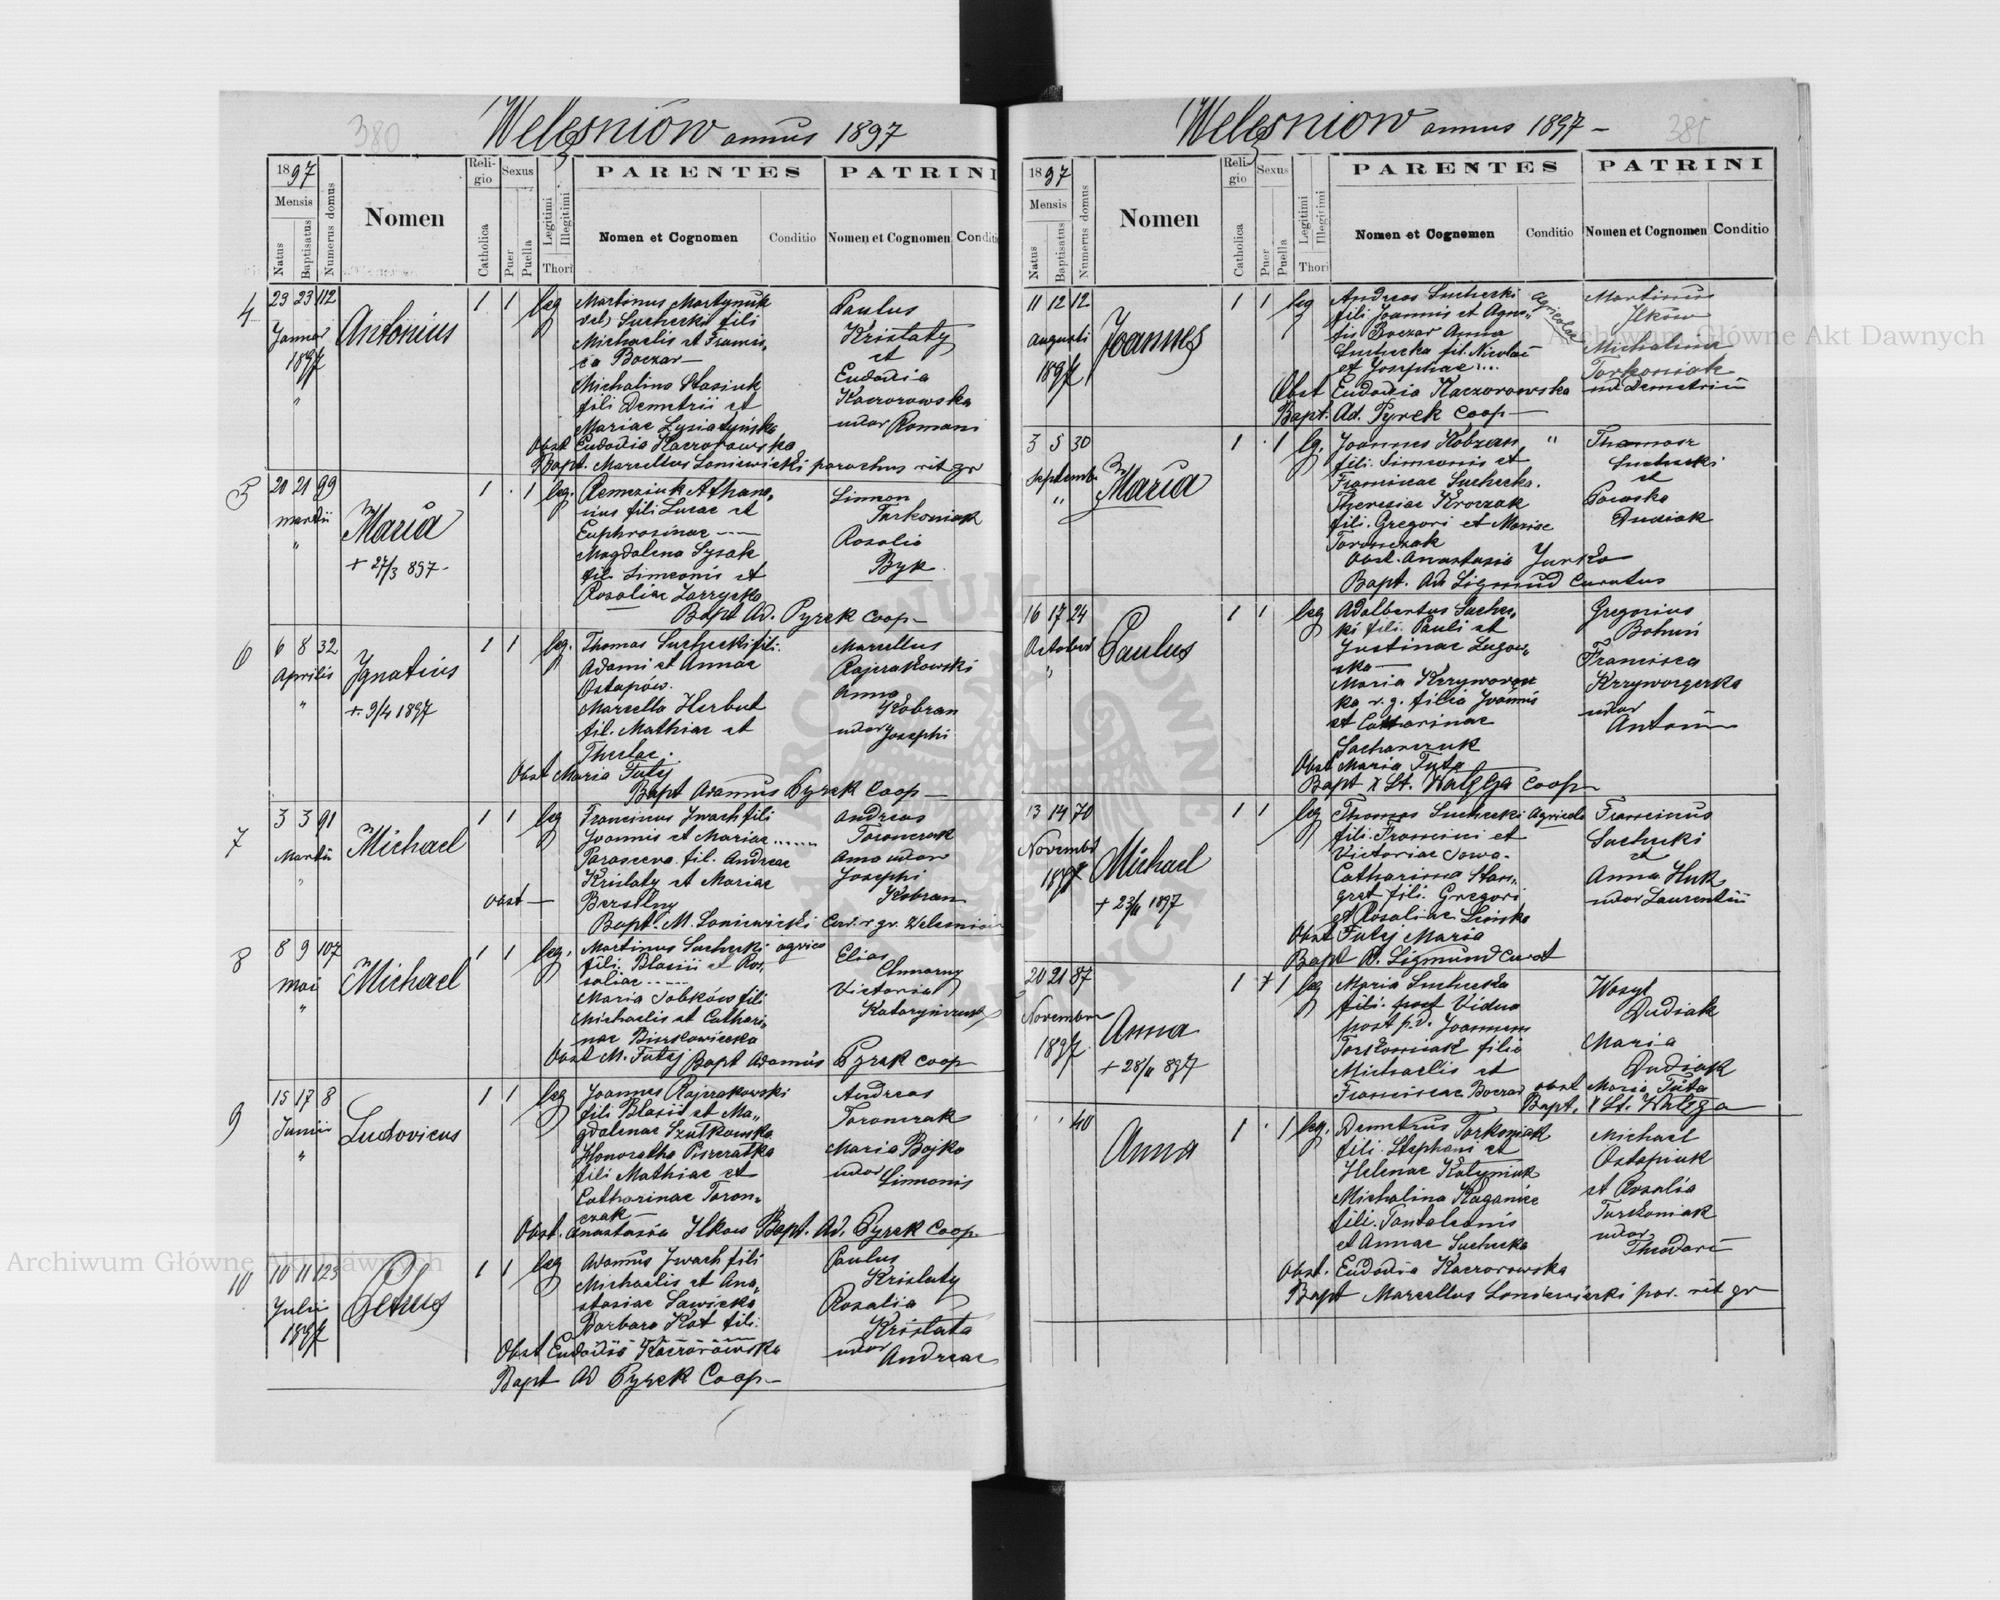 380
Welesniów annus 1897
1897
Mensis
Natus
Baptisatus
Numerus domus
Nomen
Religio
Catholica
Sexus
Puer
Puella
Legitimi
Illegitimi
Thori
PARENTES
Nomen et Cognomen
Conditio
PATRINI
Nomen et Cognomen
Conditio
4
23 23 112
Januar
1897
"
Antonius
1 1 leg
Martinus Martynuk
vel Suchecki fili
Michaelis et Francis„
ca Boczar —
Michalina Stasiuk
fili Demetrii et
Mariae Lysiatyńska
Paulus
Kristaty
et
Eudodia
Kaczorowska
uxor Romani
Obst Eudodia Kaczorowska
Bapt. Marcellus Loniewicki parochus rit gr
5
20 21 99
martii
"
Maria
+ 27/3 897 -
1 . 1 leg.
Remeziuk Athana„
sius fili Lucae et
Euphrosinae ----
Magdalena Sysak
fil. Simeonis et
Rosaliae Zarzycka
Simeon
Turkoniak
Rosalia
Byk
Bapt Ad. Pyrek coop —
6
6 8 32
Aprilis
"
Ignatius
+ 9/4 1897
1 1 leg.
Thomas Suchecki fili.
Adami et Annae
Ostapów.
Marcella Herbut
fil. Mathiae et
Theclae.
Marcellus
Rajzakowski
Anna
Kobran
uxor Josephi
Obst Maria Futyj
Bapt Adamus Pyrek Coop —
7
3 3 91
Martii
"
Michael
1 1 leg
Francinus Iwach fili
Joannis et Mariae ......
Parasceva fil. Andreae
Kristaty et Mariae
Berstlny
Andreas
Toronczak
Anna uxor
Josephi
Kobran
obst —
Bapt. M. Loniewicki Cur. r. gr. Welesniow
8
8 9 107
mai
"
Michael
1 1 leg.
Martinus Suchecki agrico
fili. Blasii et Ro„
saliae ----
Maria Sobków fili
Michaelis et Cathari„
nae
Elias
Chmarny
Victoria
Obst M. Futyj Bapt Adamus Pyrek coop
9
15 17 8
Junii
"
Ludovicus
1 1 leg
Joannes Rajzakowski
fili Blasii et Ma„
gdalenae Szutkowska
Honoratha Piszczatka
fili Mathiae et
Catharinae Toron„
czak
Andreas
Toronczak
Maria Bojko
uxor
Simeonis
Obst. Anastasia Ilkow Bapt. Ad. Pyrek Coop
10
10 11 123
Julii
1897
Petrus
1 1 leg
Adamus Iwach fili
Michaelis et Ana„
stasiae Sawicka
Barbara Kot fili.
Paulus
Kristaty
Rosalia
Kristata
uxor
Andreae
Obst Eudodia Kaczorowska
Bapt Ad Pyrek Coop —
Welesniów annus 1897 —
1897
Mensis
Natus
Baptisatus
Numerus domus
Nomen
Religio
Catholica
Sexus
Puer
Puella
Legitimi
Illegitimi
Thori
PARENTES
Nomen et Cognomen
Conditio
PATRINI
Nomen et Cognomen
Conditio
11 12 12
Augusti
1897
Joannes
1 1 leg
Andreas Suchecki
fili Joannis et Agne„
tis Boczar Anna
Suchecka fil. Nicolai
et Josephae ...
Agricolae
Martinus
Ilkow
Michalina
Torkoniak
uxor Demetrii
Obst Eudodia Kaczorowska
Bapt. Ad. Pyrek Coop —
3 5 30
Septemb
"
Maria
1 . 1 lg.
Joannes Kobran
fili. Simeonis et
Franciscae Suchecka.
Theresiae Kroczak
fili. Gregori et Mariae
Toronczak
"
Suchecki
et
Dudiak
Obst. Anastasia Jurko
Bapt. Ad Sigmund Curatus
16 17 24
October
"
Paulus
1 1 leg
Adalbertus Suchec„
ki fili. Pauli et
Justinae Lugow„
ska —
ka r. g. filia Joannis
et Catharinae
Sacharczuk
Gregorius
Francisca
uxor
Antonii
Obst Maria Futa
Bapt X St. Watęga coop —
13 14 70
Novemb
1897
Michael
+ 23/11 1897
1 1 leg
Thomas Suchecki Agricola
fili. Francini et
Victoriae Sowa.
Catharina Stan„
gret fili. Gregori
et Rosaliae
Francinus
Suchecki
et
Anna Huk
uxor Laurentii
Obst Futyj Maria
Bapt A. Sigmund Curat
20 21 87
Novembr
1897
Anna
+ 28/11 897
1 1 leg
Maria Suchecka
fili. post Vidua
post p.d. Joannem
Torkoniak filia
Michaelis et
Franciscae Boczar
Wasyl
Dudiak
Maria
Dudiak
obst Maria Futa
Bapt. X St. Watęga
" " 40
Anna
1 . 1 leg.
Demetrius Torkoniak
fili. Stephani et
Helenae Kalyniuk
Michalina Kaganiec
fili. Pantaleonis
et Annae Suchecka
Michael
Ostapiuk
et Rosalia
Turkoniak
uxor
Theodori
Obst. Eudodia Kaczorowska
Bapt Marcellus Loniewicki par. rit gr
Archiwum Główne Akt Dawnych
Archiwum Główne Akt Dawnych
ARCHIWUM GŁÓWNE AKT DAWNYCH